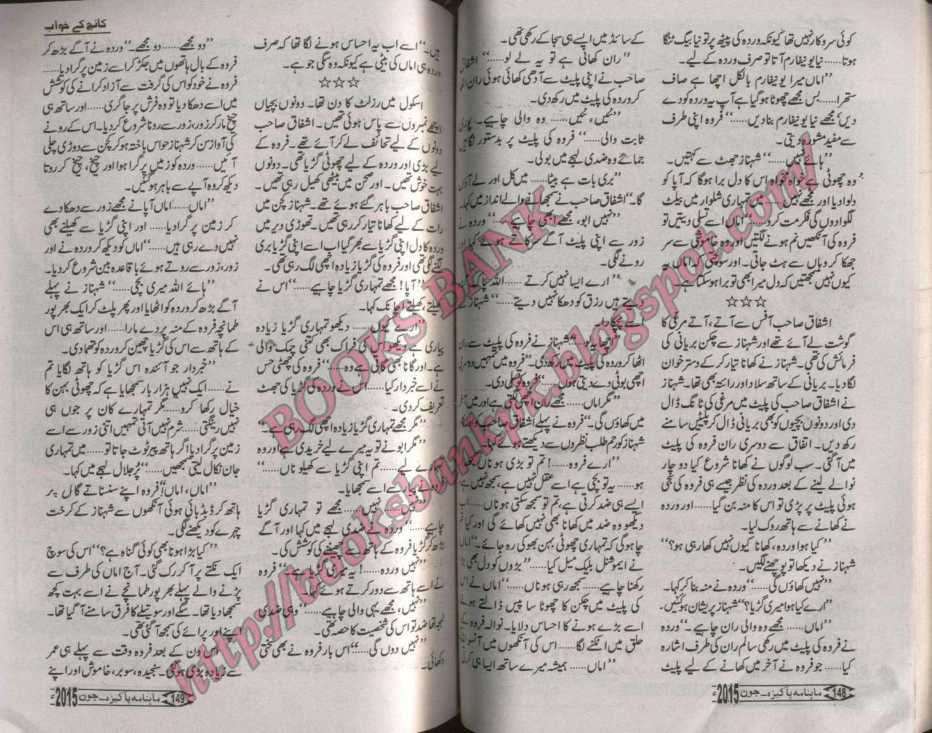 کوئی سروکار نہیں تھا کیونکہ وردہ کی پیٹھ پر تو نیا بیگ ٹنگا
ہوتا..... نیا یونیفارم آتا تو صرف وردہ کے لیے۔
”اماں میرا یونیفارم بالکل اچھا ہے صاف
ستھرا..... بس مجھے چھوٹا ہو گیا ہے آپ یہ وردہ کو دے
دیں مجھے نیا یونیفارم بنا دیں.....“ فروہ اپنی طرف
سے مفید مشورہ دیتی۔
”ہائے نہیں.....“ شہناز جھٹ سے کہتیں۔
وہ چھوٹی ہے خواہ مخواہ اس کا دل برا ہوگا کہ آپا کو
دلوا دیا اور مجھے نہیں..... تمہاری شلوار میں بیلٹ
لگوا دوں گی فکر مت کرو..... اماں اسے تسلی دیتیں تو
فروہ کی آنکھیں نم ہونے لگتیں اور وہ خاموشی سے سر
جھکا کر وہاں سے ہٹ جاتی۔ اور سوچتی کہ اماں یہ
کیوں نہیں سمجھتیں کہ دل میرا بھی تو برا ہو سکتا ہے۔
☆☆☆
اشفاق صاحب آفس سے آتے، آتے مرغی کا
گوشت لے آئے تھے اور شہناز سے چکن بریانی کی
فرمائش کی تھی۔ شہناز نے کھانا تیار کر کے دسترخوان
لگا دیا۔ بریانی کے ساتھ سلاد اور رائتہ بھی تھا۔ شہناز
نے اشفاق صاحب کی پلیٹ میں مرغی کی ٹانگ ڈال
دی اور دونوں بچیوں کو بھی بریانی ڈال کر پلیٹیں سامنے
رکھ دیں۔ اتفاق سے دوسری ران فروہ کی پلیٹ
میں آ گئی۔ سب لوگوں نے کھانا شروع کیا دو چار
نوالے لینے کے بعد وردہ کی نظر جیسے ہی فروہ کی سجی
ہوئی پلیٹ پر پڑی تو اس کا منہ بن گیا..... اور وردہ
نے کھانے سے ہاتھ روک لیا۔
”کیا ہوا وردہ، کھانا کیوں نہیں کھا رہی ہو؟“
شہناز نے دیکھا تو پوچھنے لگیں۔
”نہیں کھاؤں گی.....“ وردہ نے منہ بنا کر کہا۔
”ارے کیا ہوا میری گڑیا؟“ شہناز پریشان ہو گئیں۔
”اماں..... مجھے وہ والی ران چاہیے۔“ وردہ
نے فروہ کی پلیٹ میں رکھی سالم ران کی طرف اشارہ
کیا..... جو فروہ نے آخر میں کھانے کے لیے پلیٹ
148 ماہنامہ پاکیزہ۔ جون 2015ء
کے سائڈ میں ایسے ہی سجا کے رکھی تھی۔
”ران کھانی ہے تو یہ لے لو.....“ اشفاق
صاحب نے اپنی پلیٹ سے آدھی کھائی ہوئی ران
کر وردہ کی پلیٹ میں رکھ دی۔
”نہیں، نہیں..... وہ والی چاہیے۔ پوری
ثابت والی.....“ فروہ کی پلیٹ پر بدستور نگاہیں
جمائے وہ ضدی لہجے میں بولی۔
”بری بات ہے بیٹا..... میں کل اور لے آؤں
گا۔“ اشفاق صاحب نے سمجھانے والے انداز میں کہا۔
”نہیں ابو، مجھے ابھی چاہیے.....“ وردہ نے
زور سے اپنی پلیٹ آگے سرکاتے ہوئے کہا اور
رونے لگی۔
”ارے ایسا نہیں کرتے..... اللہ
ہوتے ہیں رزق کو دھکا نہیں دیتے.....“ شہناز
شہناز نے فروہ کی پلیٹ سے ران
اٹھا کر وردہ کی پلیٹ میں رکھ دی۔ ”فروہ میں تمہیں دوسری
اچھی بوٹی دے دیتی ہوں.....“
”مگر اماں..... مجھے ران اچھی لگتی ہے اور میں
میں کھاؤں گی.....“ فروہ نے پہلے اشفاق صاحب کی
شہناز کو رحم طلب نظروں سے دیکھتے ہوئے
”ارے فروہ.....! تم تو بڑی ہو ناں
..... یہ تو بچی ہے اسے عقل نہیں ہے، سمجھ نہیں ہے
ایسے ہی ضد کرتی ہے، تم تو سمجھ سکتی ہو ناں
دیکھو وہ ضد میں کھانا بھی نہیں کھائے گی اور کیا تم
چاہو گی کہ تمہاری چھوٹی بہن بھوکی رہ جائے۔“ اماں
نے ایموشنل بلیک میل کیا.....”بڑوں کو دل بھی بڑا
رکھنا چاہیے..... سمجھ رہی ہو ناں.....“ اماں نے اس
کی پلیٹ میں چکن کا چھوٹا سا پیس ڈالتے ہوئے
اسے بڑے ہونے کا احساس دلایا۔ نوالہ فروہ کے
حلق میں اٹکنے لگا..... اس کی آنکھوں میں آنسو
”اماں..... ہمیشہ میرے ساتھ ایسا ہی کرتی
کانچ کے خواب
ہیں۔“ اسے اب یہ احساس ہونے لگا تھا کہ صرف
وردہ ہی اماں کی بیٹی ہے کیونکہ وہ کی جو ہے۔
☆☆☆
اسکول میں رزلٹ کا دن تھا۔ دونوں بچیاں
اچھے نمبروں سے پاس ہوئی تھیں۔ اشفاق صاحب
دونوں کے لیے تحائف لے کر آئے تھے۔ فروہ کے
لیے بڑی اور وردہ کے لیے چھوٹی گڑیا تھی۔ دونوں
بہت خوش تھیں۔ اور صحن میں بیٹھی کھیل رہی تھیں۔
اشفاق صاحب باہر گئے ہوئے تھے۔ شہناز کچن میں
رات کے لیے کھانا تیار کر رہی تھیں۔ تھوڑی دیر میں
وردہ کا دل اپنی گڑیا سے بھر گیا اب اسے اپنی گڑیا بری
لگنے لگی تھی اور فروہ کی گڑیا زیادہ اچھی لگ رہی تھی۔
”آپا! مجھے تمہاری گڑیا چاہیے.....“ اس نے
کھیلتے کھیلتے اچانک کہا۔
..... دیکھو تمہاری گڑیا زیادہ
پیاری ہے..... فراک بھی کتنی چمک والی
ہے۔ اور گانا بھی گاتی ہے.....“ فروہ کی چھٹی حس
نے اسے خبردار کیا..... اس نے وردہ کی گڑیا کی جھٹ
تعریف کر دی۔
”مگر مجھے تمہاری گڑیا زیادہ اچھی لگ رہی ہے.....“
”مگر ابو نے تو یہ میرے لیے خریدی ہے اور وہ
..... لیے..... تم اپنی گڑیا سے کھیلو ناں.....“
نے پیار سے اسے سمجھایا۔
”نہیں..... مجھے تو تمہاری گڑیا
چاہیے.....“ وردہ نے ضدی لہجے میں کہا اور آگے
بڑھ کر گڑیا فروہ کے ہاتھ سے چھیننے کی کوشش کی۔
”نہیں وردہ.....! یہ میری گڑیا ہے.....“ فروہ
نے اسے ہاتھ سے دور کرتے ہوئے کہا۔
”نہیں، مجھے یہی والی چاہیے.....“ وہی ضدی
لہجہ تھا ضد تو اس کی شخصیت کا حصہ تھی۔
”نہیں دوں گی.....“ اس بار فروہ نے بھی سختی
دکھائی۔
”دو مجھے..... دو مجھے۔“ وردہ نے آگے بڑھ کر
فروہ کے بال ہاتھوں میں جکڑ کر اسے زمین پر گرا دیا.....
فروہ نے خود کو اس کی گرفت سے آزاد کرانے کی کوشش
میں اسے دھکا دیا تو وہ فرش پر جا گری..... اور ساتھ ہی
چیخ مار کر زور، زور سے رونا شروع کر دیا۔ اس کے رونے
کی آواز سن کر شہناز حواس باختہ ہو کر کچن سے دوڑی چلی
آئیں..... وردہ کو زمین پر گرا ہوا اور چیخ، چیخ کر روتا
دیکھ کر وہ آپے سے باہر ہو گئیں۔
”اماں..... اماں آپا نے مجھے زور سے دھکا دے
کر زمین پر گرا دیا..... اور اپنی گڑیا سے کھیلنے بھی
نہیں دے رہی ہیں.....“ اماں کو دیکھ کر وردہ نے اور
زور، زور سے روتے ہوئے باقاعدہ بین شروع کر دیا۔
”ہائے اللہ میری بچی.....“ شہناز نے پہلے
آگے بڑھ کر وردہ کو اٹھایا اور پھر پلٹ کر ایک بھرپور
طمانچہ فروہ کے منہ پر دے مارا..... اور ساتھ ہی اس
کے ہاتھ سے اس کی گڑیا چھین کر وردہ کو تھما دی۔
”خبردار جو آئندہ اس گڑیا کو ہاتھ لگایا تم
نے..... ایک نہیں ہزار بار سمجھایا ہے کہ چھوٹی بہن کا
خیال رکھا کرو..... مگر تمہارے کان پر جوں ہی
نہیں رینگتی..... شرم نہیں آئی تمہیں اتنی زور سے اسے
زمین پر گرا دیا اگر ہاتھ پیر ٹوٹ جاتا تو..... تمہاری
جان نکال لیتی سمجھیں.....“ پُرجلال لہجے میں کہا۔
”اماں، اماں! فروہ اپنے سنسناتے گال پر
ہاتھ رکھ کر ڈبڈبائی ہوئی آنکھوں سے شہناز کے کرخت
چہرے کو دیکھنے لگی۔
”کیا بڑا ہونا بھی کوئی گناہ ہے؟“ اس کی سوچ
ایک نکتے پر آ کر رک گئی۔ آج اماں کی طرف سے
پڑنے والے پہلے بھرپور طمانچے نے اسے بہت کچھ
سمجھا دیا تھا۔ سگے اور سوتیلے کا فرق سامنے آ گیا تھا۔
اپنے اور پرائے کی سمجھ آ گئی تھی۔
اس دن کے بعد فروہ وقت سے پہلے ہی عمر
سے زیادہ بڑی ہو گئی۔ سنجیدہ، سوبر، خاموش اور اپنے
149 ماہنامہ پاکیزہ۔ جون 2015ء
BOOKS BANK
http://booksbankpk.blogspot.com/